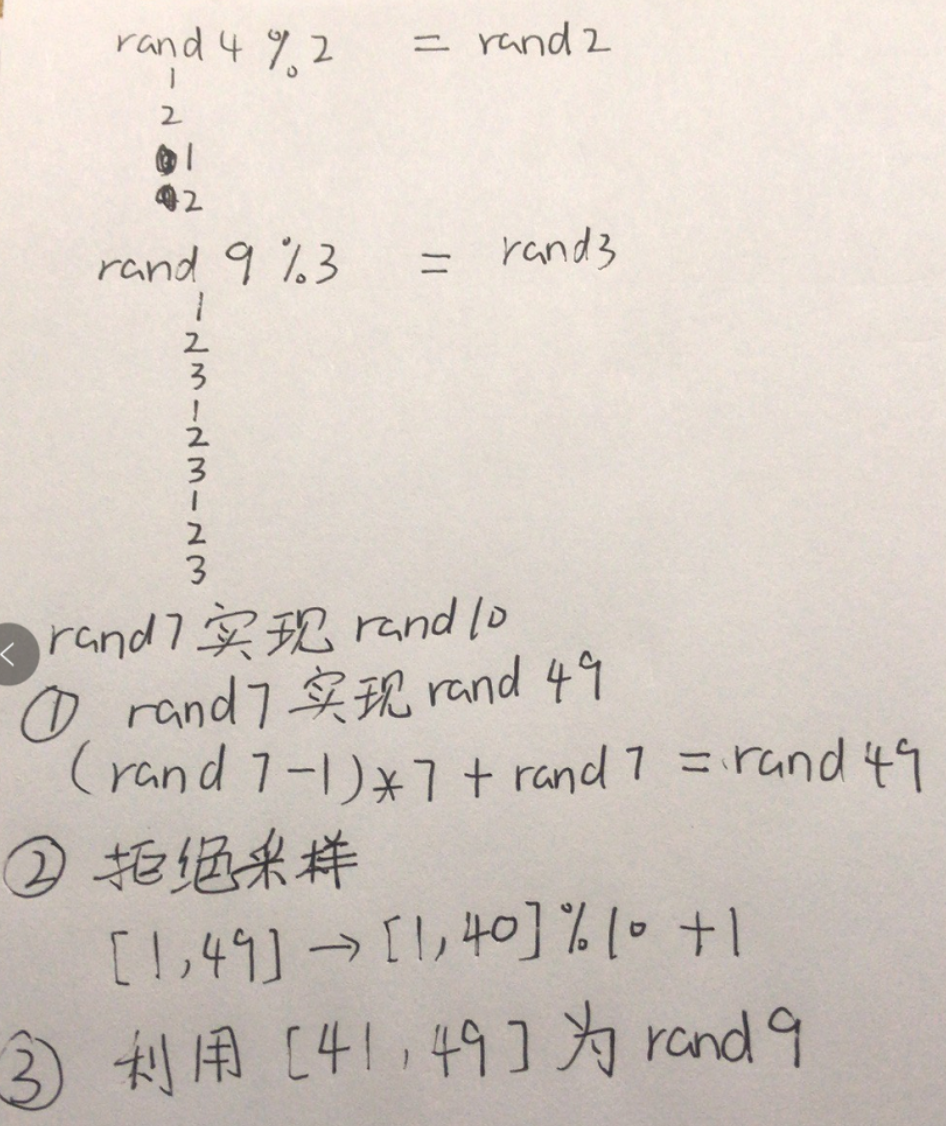 rand 4 % 2 = rand 2
1
2
1
2
rand 9 % 3 = rand3
1
2
3
1
2
3
1
2
3
rand7 实现 rand10
① rand7 实现 rand 49
(rand 7-1)*7 + rand 7 = rand 49
② 拒绝采样
[1,49] → [1,40] % 10 + 1
③ 利用 [41,49] 为 rand 9